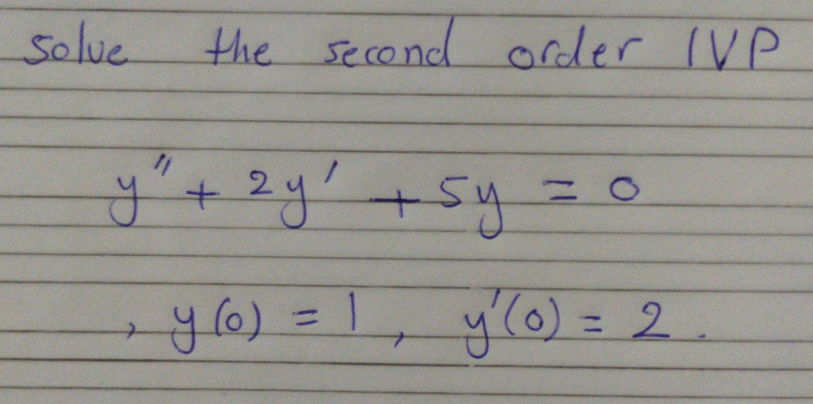 solve the second order IVP
y" + 2y' + 5y = 0
, y(0) = 1, y'(0) = 2.